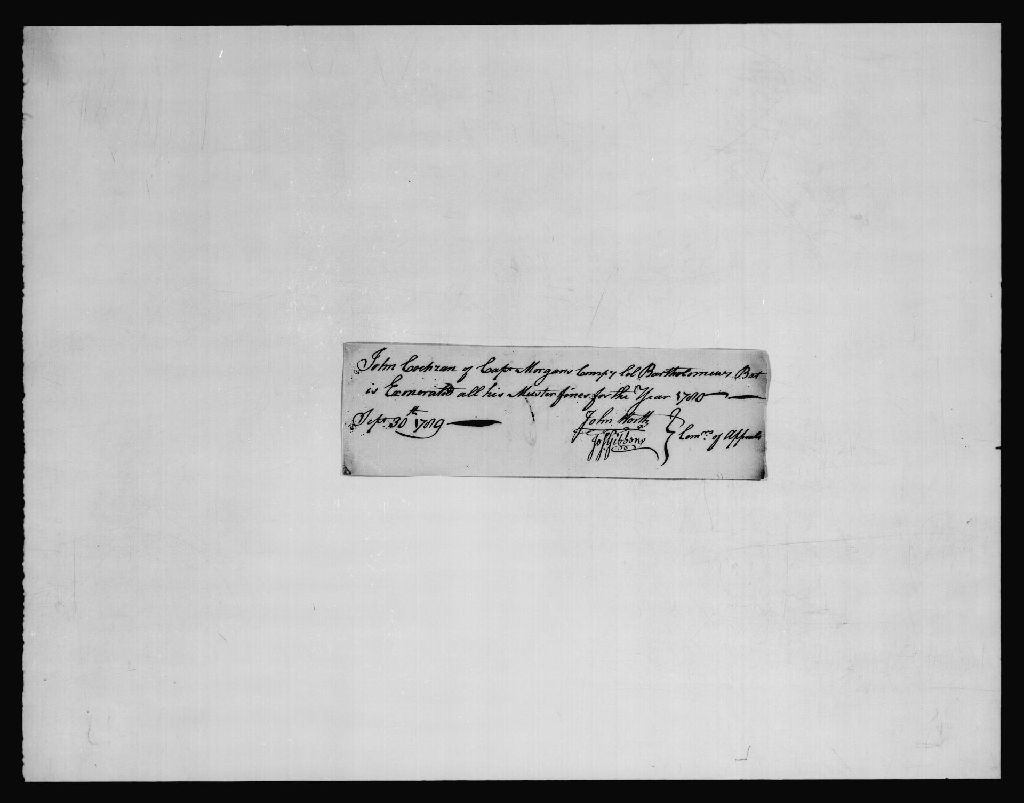 John Cochran of Capt Morgans Compy Col Bartholomews Bat
is Exonerated all his Muster fines for the Year 1780
Sept. 30th 1789
John Worth
Jos Gibbons
Comrs. of Appeals